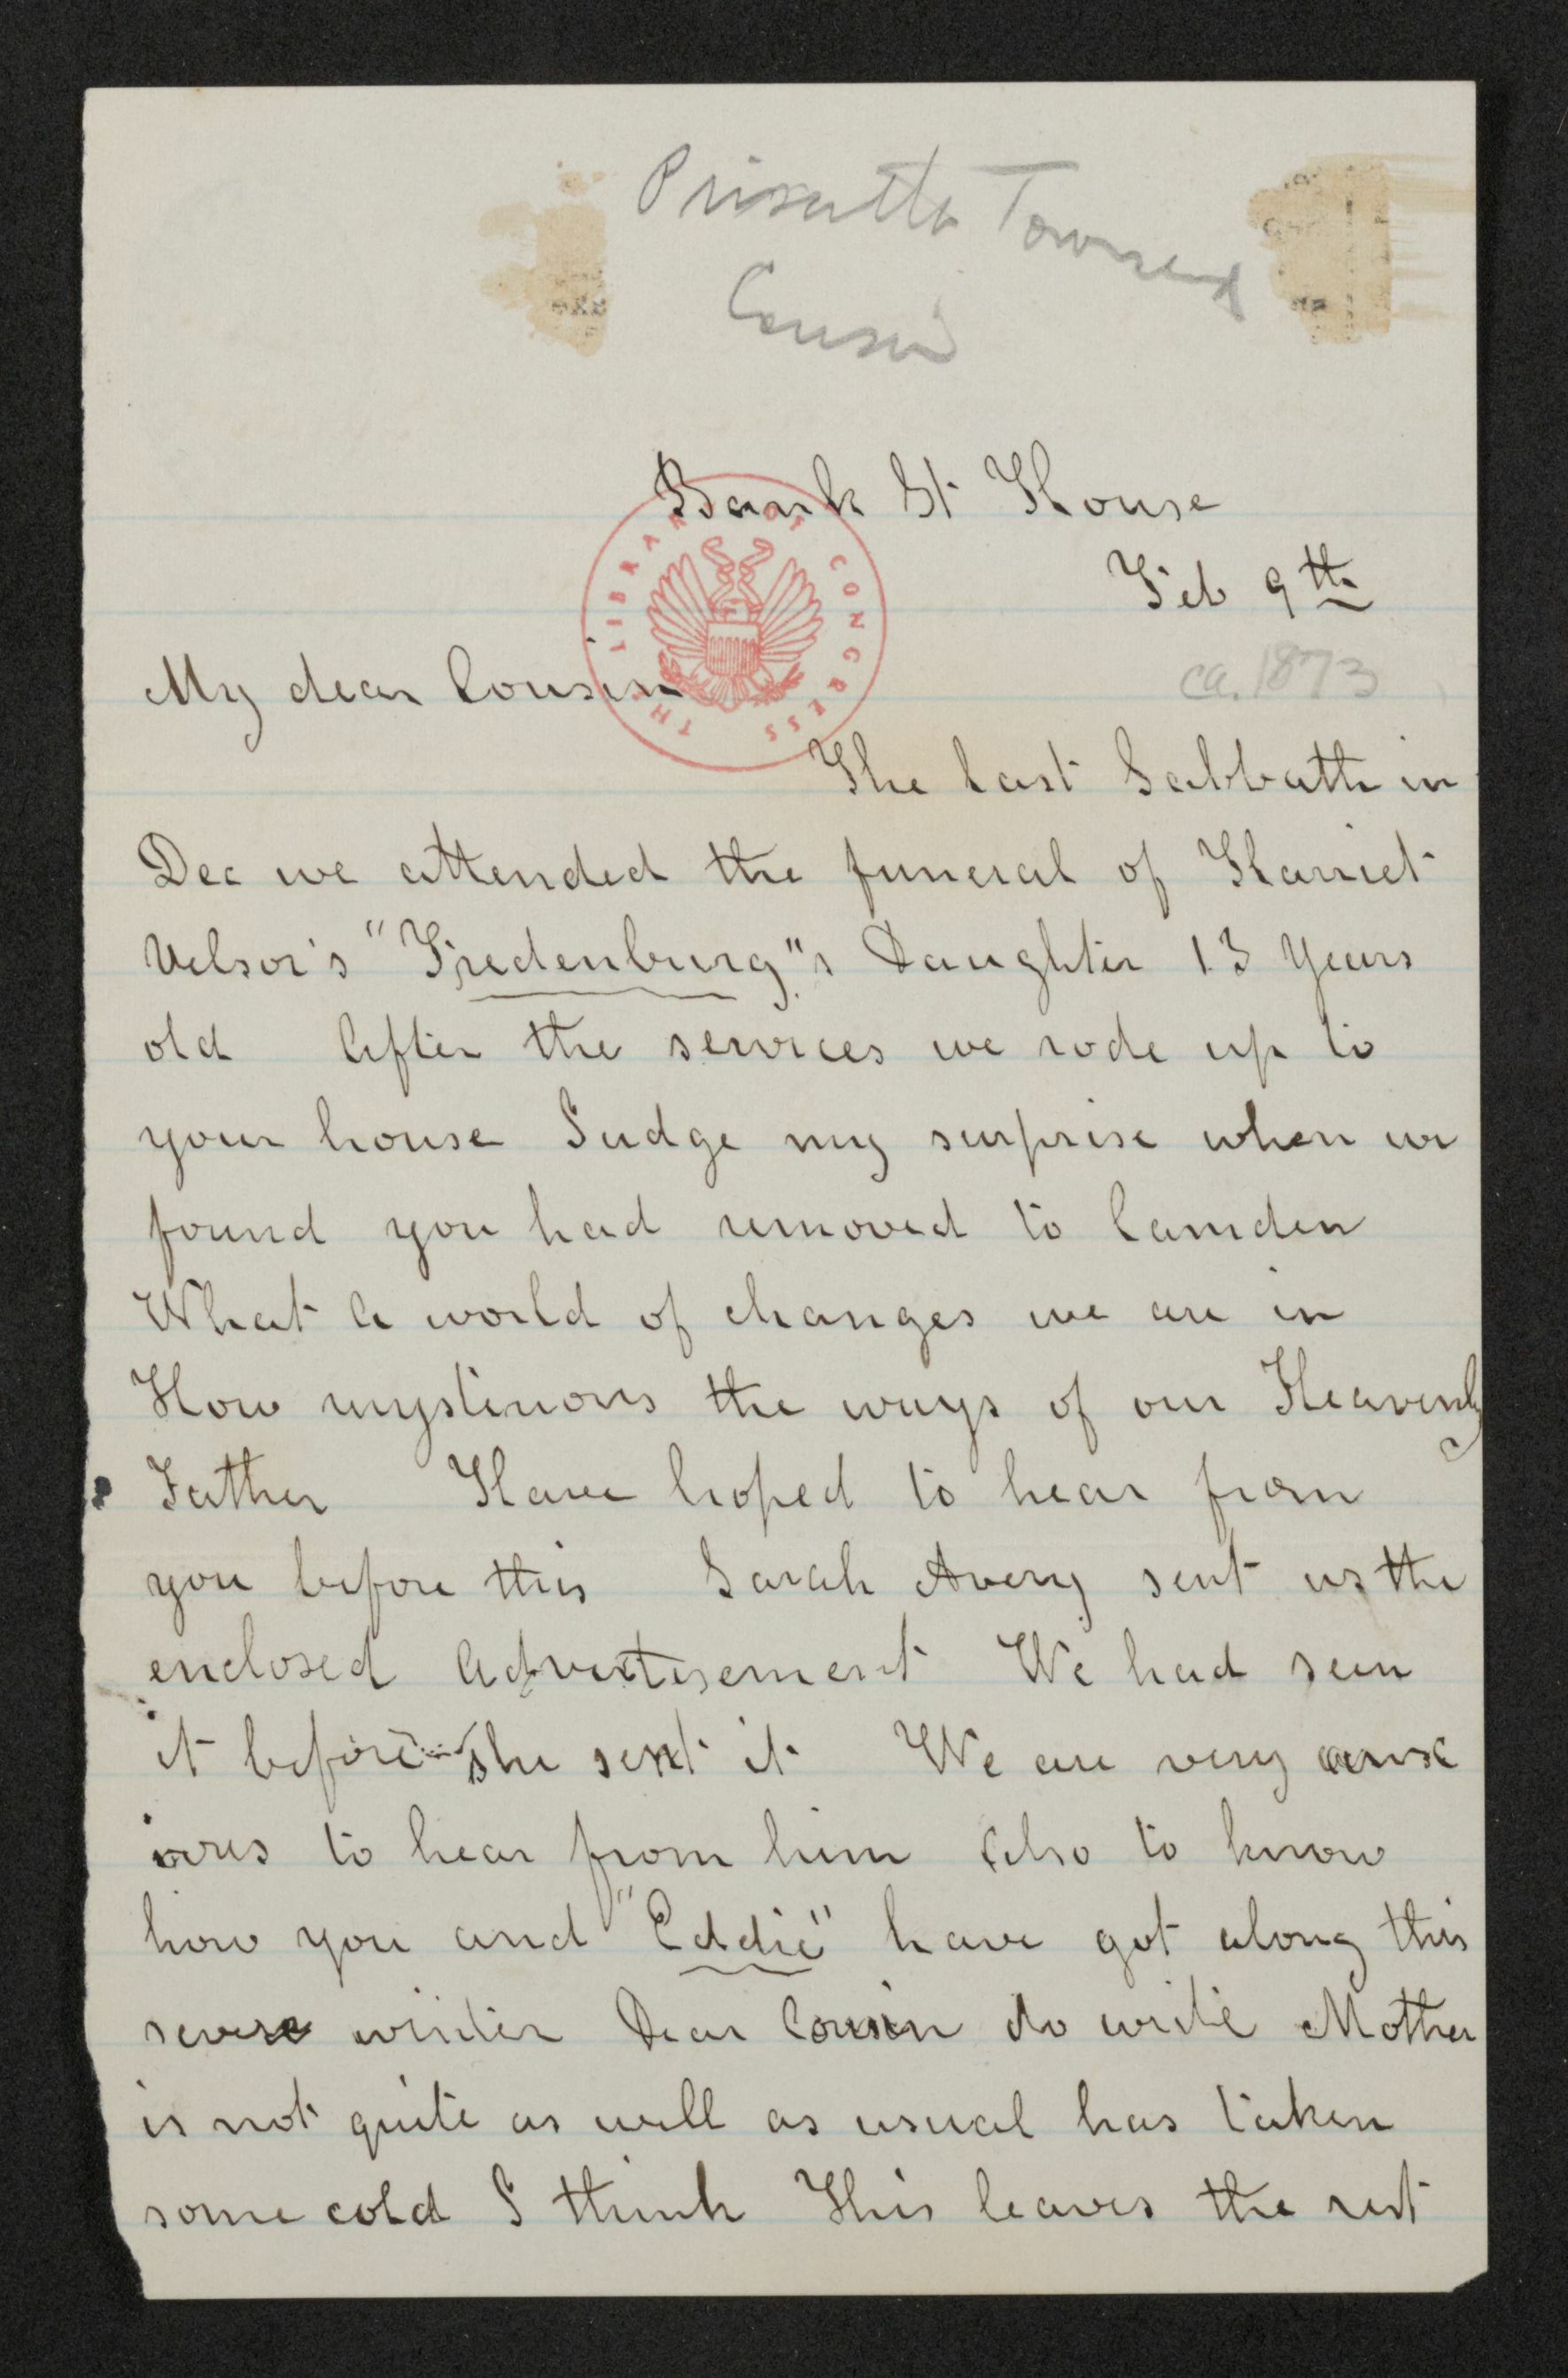 Priscilla Townsend
Cousin
Bank St House
Feb 9th
ca. 1873
THE LIBRARY OF CONGRESS
My dear Cousin
The last Sabbath in
Dec we attended the funeral of Harriet
Velsor's "Fredenburg"s Daughter 13 Years
old After the services we rode up to
your house Judge my surprise when we
found you had removed to Camden
What a world of changes we are in
How mysterious the ways of our Heavenly
Father Have hoped to hear from
you before this Sarah Avery sent us the
enclosed Advertisement We had seen
it before she sent it We are very anxi
ous to hear from him also to know
how you and "Eddie" have got along this
severe winter Dear Cousin do write Mother
is not quite as well as usual has taken
some cold I think This leaves the rest